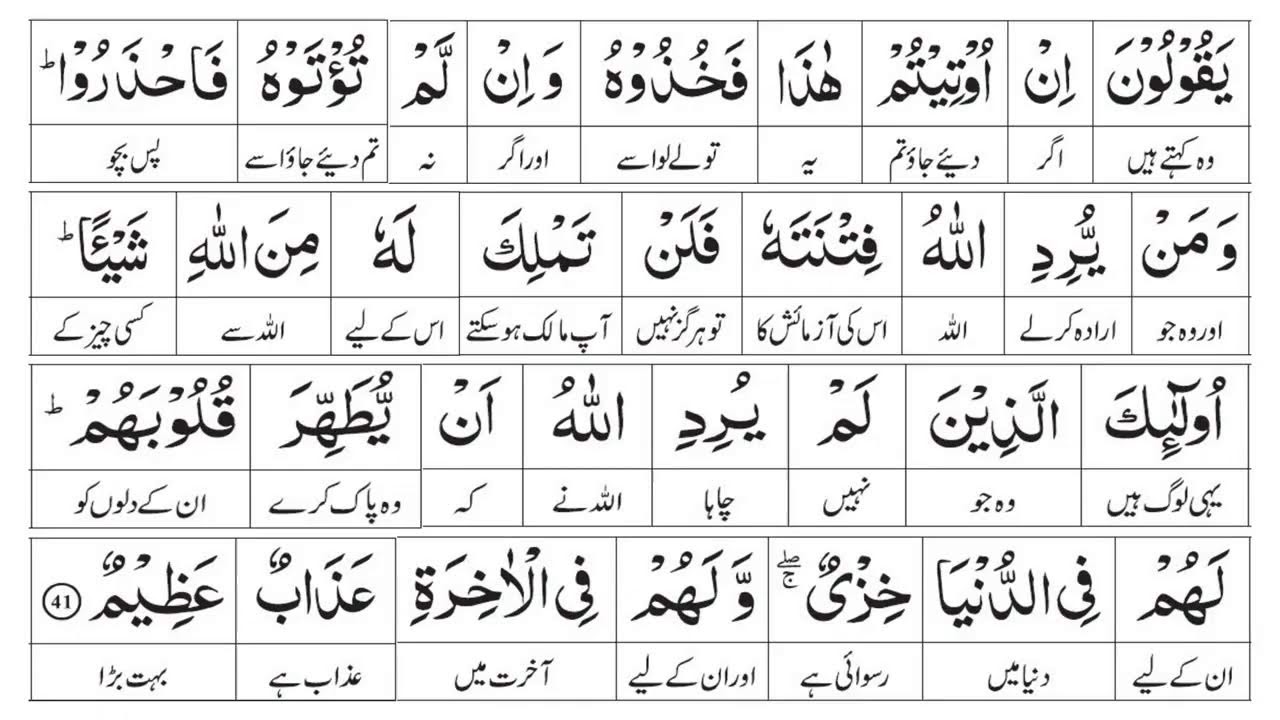 يَقُوْلُوْنَ اِنْ اُوْتِيْتُمْ هٰذَا فَخُذُوْهُ وَ اِنْ لَّمْ تُؤْتَوْهُ فَاحْذَرُوْا ؕ
وہ کہتے ہیں اگر دیئے جاؤ تم یہ تو لے لو اسے اور اگر نہ تم دیئے جاؤ اسے پس بچو
وَ مَنْ يُّرِدِ اللّٰهُ فِتْنَتَهٗ فَلَنْ تَمْلِكَ لَهٗ مِنَ اللّٰهِ شَيْـًٔا ؕ
اور وہ جو ارادہ کر لے اللہ اس کی آزمائش کا تو ہرگز نہیں آپ مالک ہو سکتے اس کے لیے اللہ سے کسی چیز کے
اُولٰٓئِكَ الَّذِيْنَ لَمْ يُرِدِ اللّٰهُ اَنْ يُّطَهِّرَ قُلُوْبَهُمْ ؕ
یہی لوگ ہیں وہ جو نہیں چاہا اللہ نے کہ وہ پاک کرے ان کے دلوں کو
لَهُمْ فِي الدُّنْيَا خِزْيٌ ۖۚ وَّ لَهُمْ فِي الْاٰخِرَةِ عَذَابٌ عَظِيْمٌ 41
ان کے لیے دنیا میں رسوائی ہے اور ان کے لیے آخرت میں عذاب ہے بہت بڑا